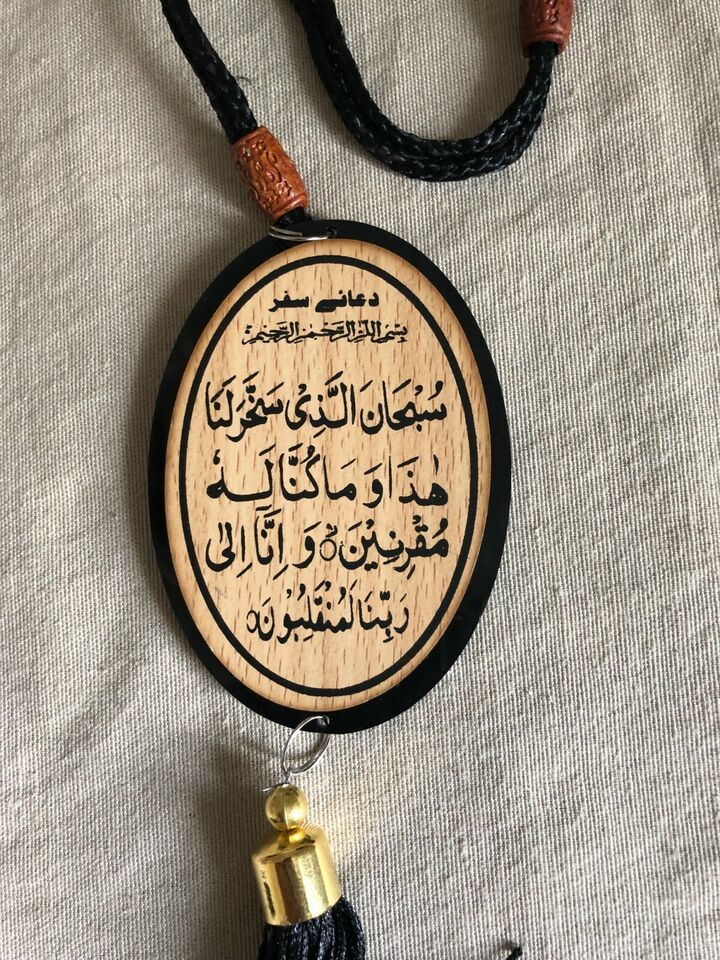 دعائے سفر
بِسْمِ اللّٰهِ الرَّحْمٰنِ الرَّحِيْمِ
سُبْحَانَ الَّذِیْ سَخَّرَ لَنَا
هٰذَا وَ مَا كُنَّا لَهٗ
مُقْرِنِيْنَ ۙ وَ اِنَّآ اِلٰى
رَبِّنَا لَمُنْقَلِبُوْنَ ۝